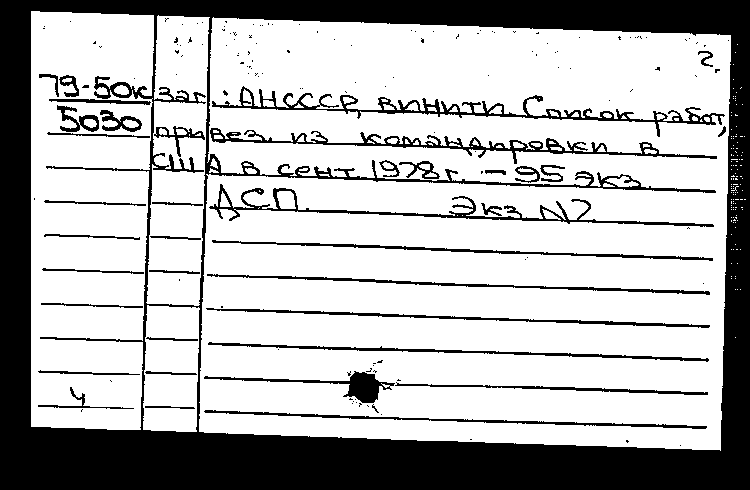 2.
79-50к заг.: АНСССР, ВИНИТИ. Список работ,
5030 привез. из командировки в
США в сент. 1978г. – 95 экз.
ДСП. Экз N2
4